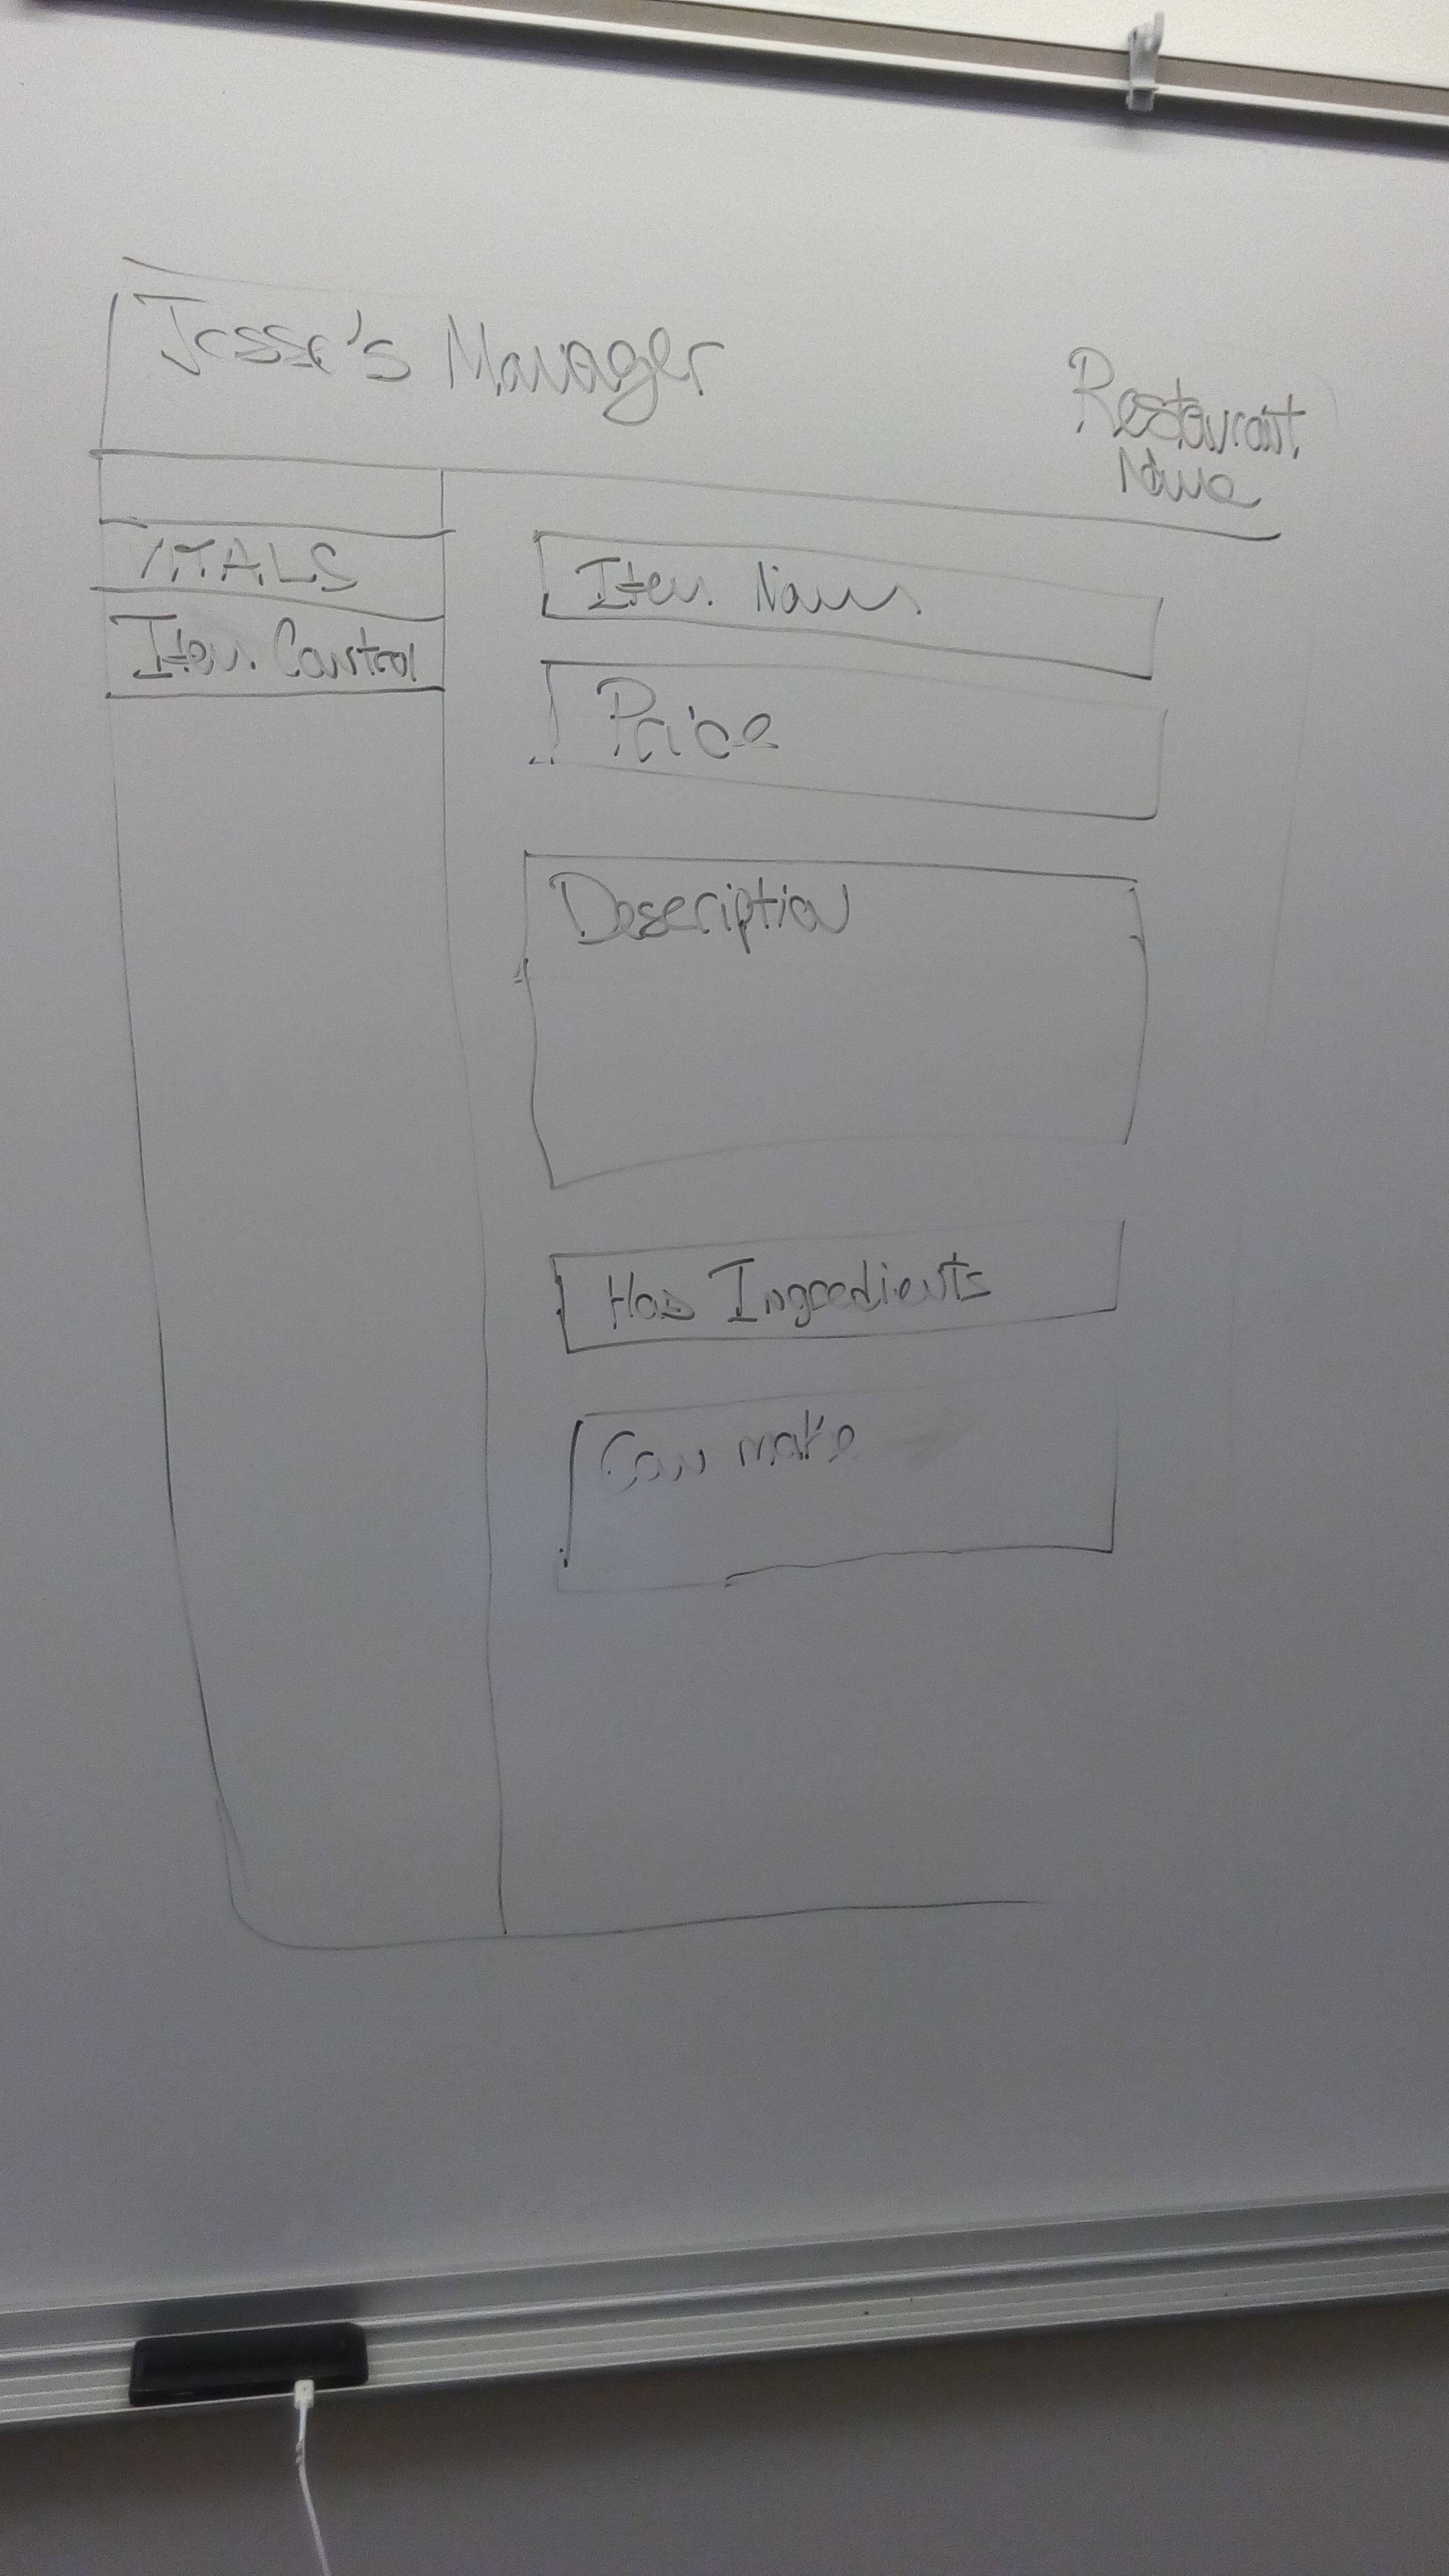 Jesse's Manager
Restaurant
Name
VITALS
Item Control
Item Name
Price
Description
Has Ingredients
Can make